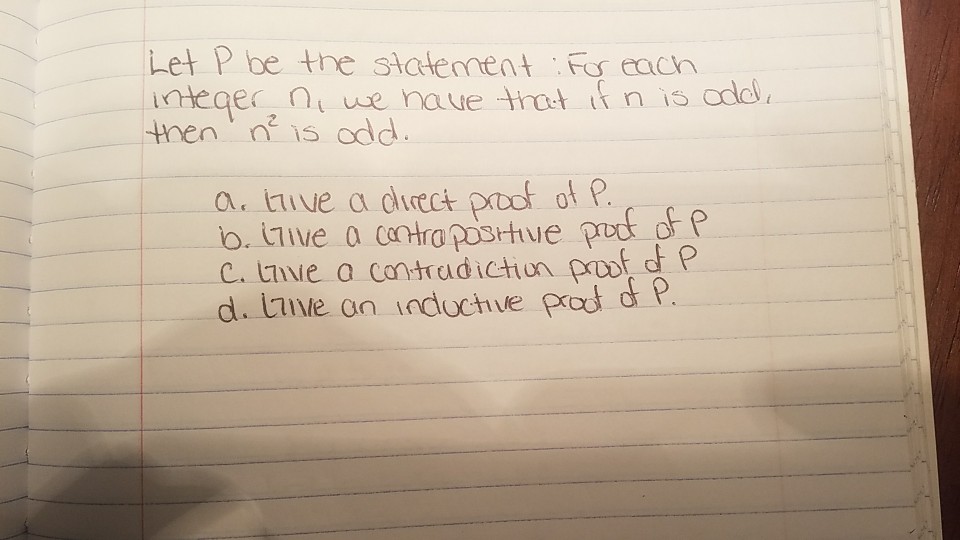 Let P be the statement : For each
integer n, we have that if n is odd,
then n² is odd.
a. Give a direct proof of P.
b. Give a contrapositive proof of P
c. Give a contradiction proof of P
d. Give an inductive proof of P.